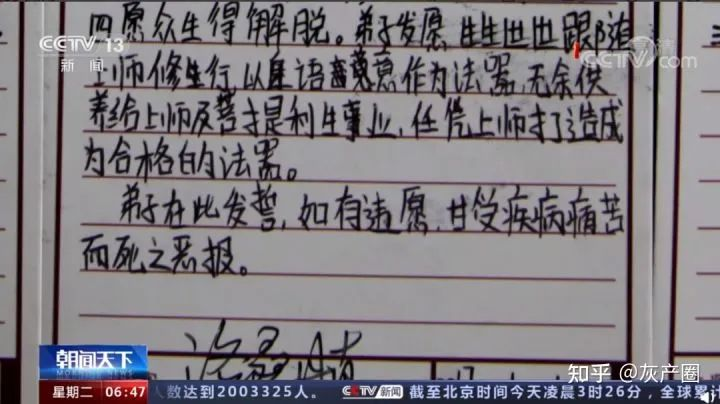 CCTV 13
新闻
CCTV.com
高清
四愿众生得解脱。弟子发愿生生世世跟随
上师修行,以身语意作为法器,无余供
养给上师及菩提利生事业,任凭上师打造成
为合格的法器。
弟子在此发誓,如有违愿,甘受疾病痛苦
而死之恶报。
朝闻天下
MORNING NEWS
星期二 06:47
人数达到2003325人。 CCTV新闻 截至北京时间今天凌晨3时26分,全球累计
知乎 @灰产圈